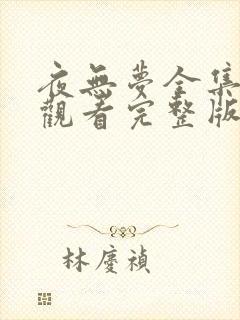 夜無夢全集
觀看完整版
林慶禎